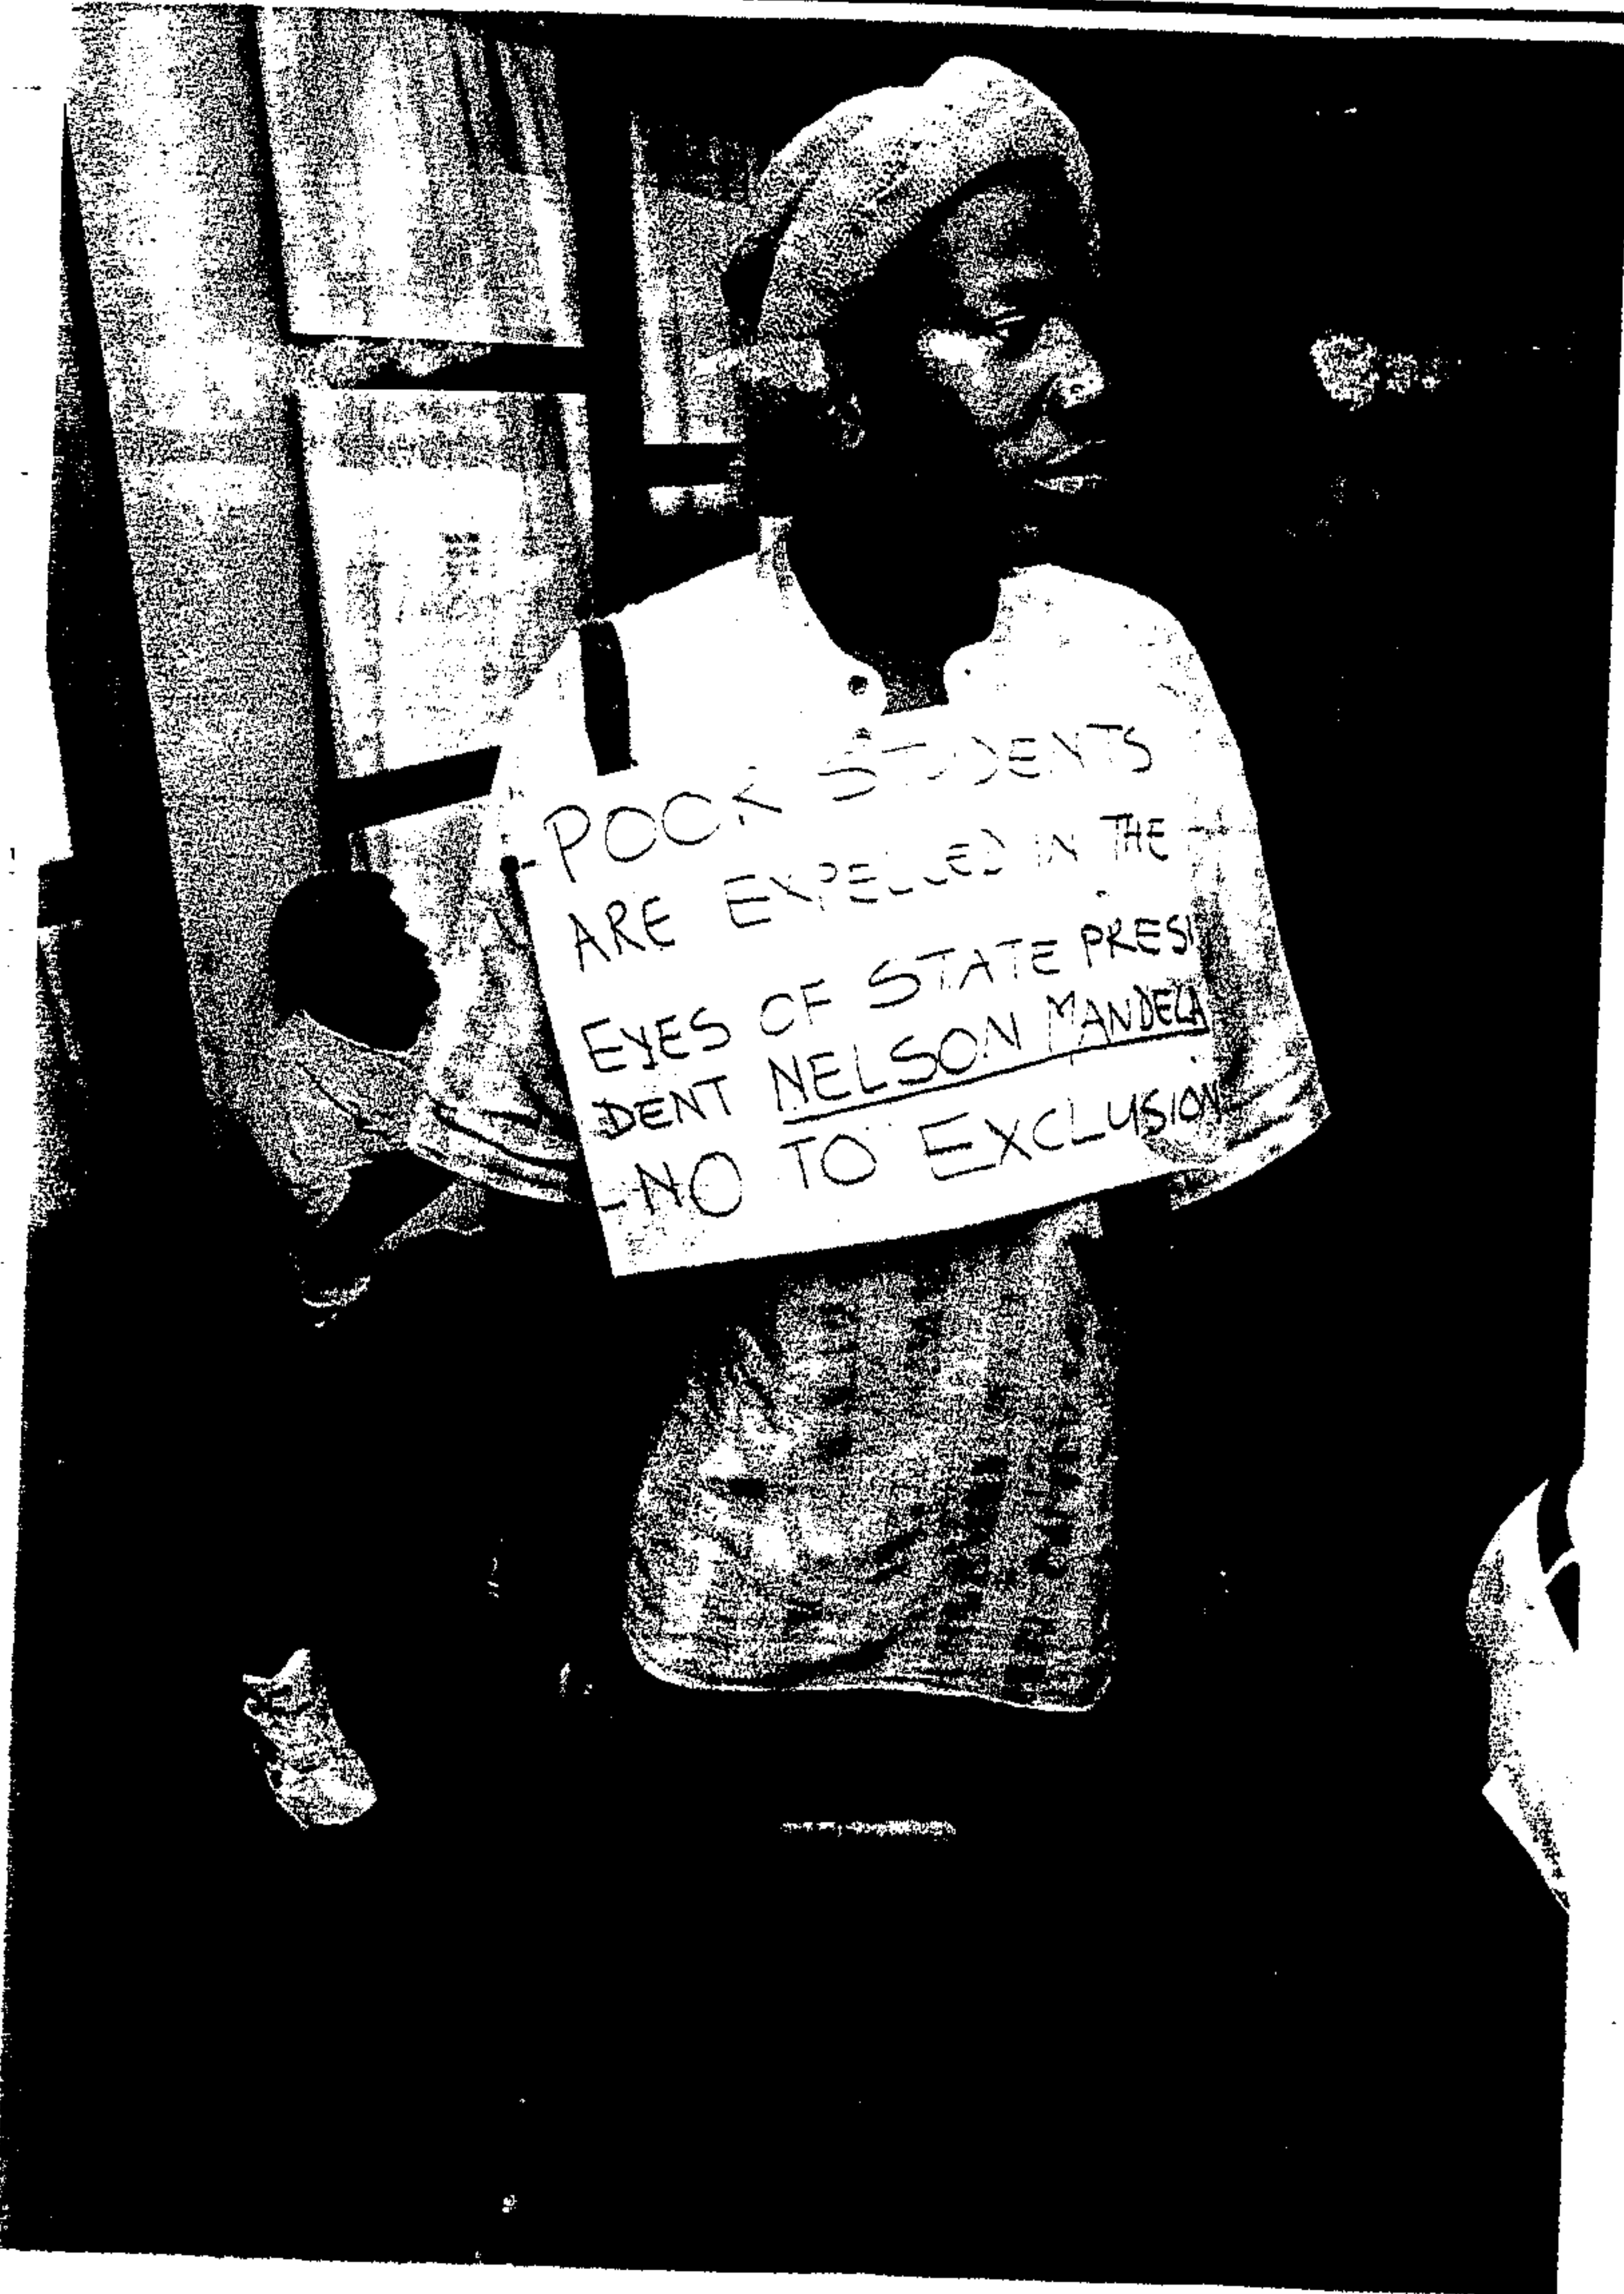 -POOR STUDENTS
ARE EXPELLED IN THE
EYES OF STATE PRESI
DENT NELSON MANDELA
-NO TO EXCLUSION